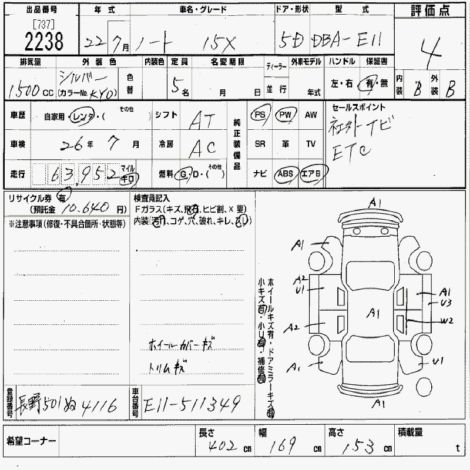 出品番号
[737]
2238
年式
22年7月
車名・グレード
ノート 15X
ドア・形状
5D
型式
DBA-E11
評価点
4
排気量
1500cc
外装色
シルバー
(カラーNo. KY0)
色替
内装色
定員
5名
名変期限
月 日
ディーラー
並行
外車モデル
年
ハンドル
左・右
保証書
有・無
内装
B
外装
B
車歴
自家用・レンタ・(その他)
シフト
AT
純正装備品
PS PW AW
SR 革 TV
ナビ ABS エアB
セールスポイント
社外ナビ
ETC
車検
26年7月
冷房
AC
走行
63,952
マイル
キロ
燃料
G・D・(その他)
リサイクル券 有
(預託金 10,640円)
※注意事項(修復・不具合箇所・状態等)
検査員記入
Fガラス(キズ、飛石、ヒビ割、X要)
内装(汚れ、コゲ、穴、破れ、キレ、
ホイールカバーキズ
トリムキズ
ホイールキズ有・ドアミラーキズ有
A1
A1
A1
A2
U1
A1
A1
U3
A2
W2
A1
U1
A1
登録番号
長野501ぬ4116
車台番号
E11-511349
希望コーナー
長さ
402cm
幅
169cm
高さ
153cm
積載量
t